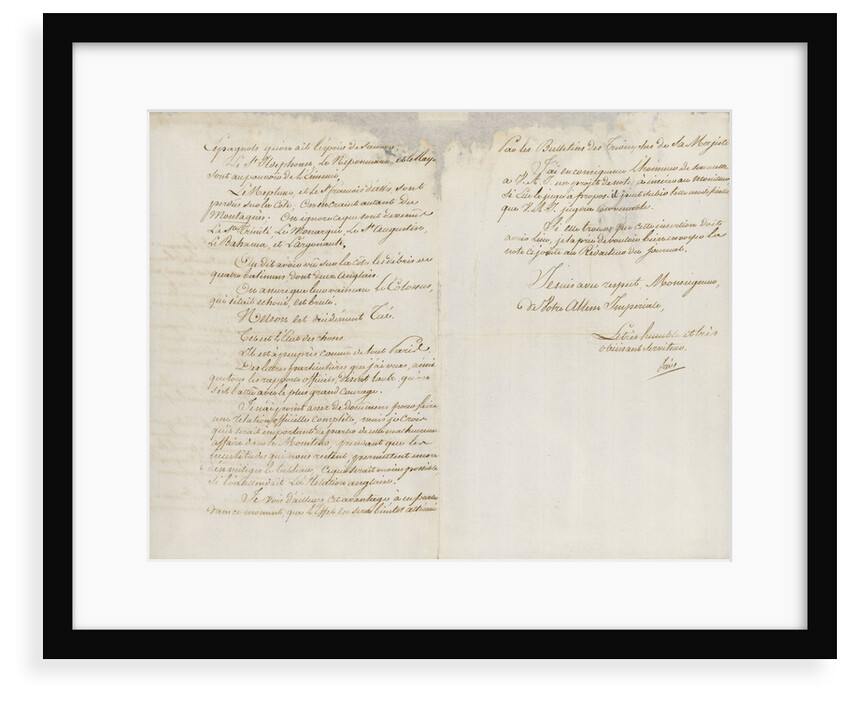 Espagnols qu'on ait l'espoir de sauver.
Le St Ildephonse, le Nepomucene, et le Bay
sont au pouvoir de l'Ennemi.
Le Neptune, et le St francois d'assis sont
perdus sur la Côte. On en craint autant du
Montagnès. On ignore ce que sont devenus
La Ste Trinité, Le Monarque, Le St Augustin,
Le Bahama, et L'argonaute.
On dit avoir vu sur la côte les débris de
quatre batimens, dont deux anglais.
On assure que leur vaisseau le Colossus,
qui était echoué, est brulé.
Nelson est decidement Tué.
Tel est l'état des choses
Il est à peu près connu de tout Paris.
Des lettres particulieres que j'ai vues, ainsi
que tous les rapports officiels, disent toute, qu'on
s'est battu avec le plus grand courage.
Je n'ai point assez de documens pour faire
une relation officielle complète, mais je crois
qu'il serait important de parler de cette malheureuse
affaire dans le Moniteur, pensant que les
incertitudes qui nous restent, permettent encore
d'en mitiger le tableau, ce qui serait moins possible
si l'on attendait La Relation anglaise.
Je vois d'ailleurs cet avantage à en parler
dans ce moment, que l'effet en sera bientot atténué
Par les Bulletins des Triomphes de Sa Majesté
J'ai en conséquence l'honneur de soumettre
à V.A.I. un projet de note, à inserer au Moniteur
si Elle le juge à propos, il
que V.A.I. jugera convenable.
Si elle trouve que cette insertion doit
avoir lieu, je la prie de vouloir bien envoyer la
note ci jointe au Rédacteur du Journal.
Je suis avec respect Monseigneur,
de Votre Altesse Impériale,
Le très humble et très
obéissant Serviteur.